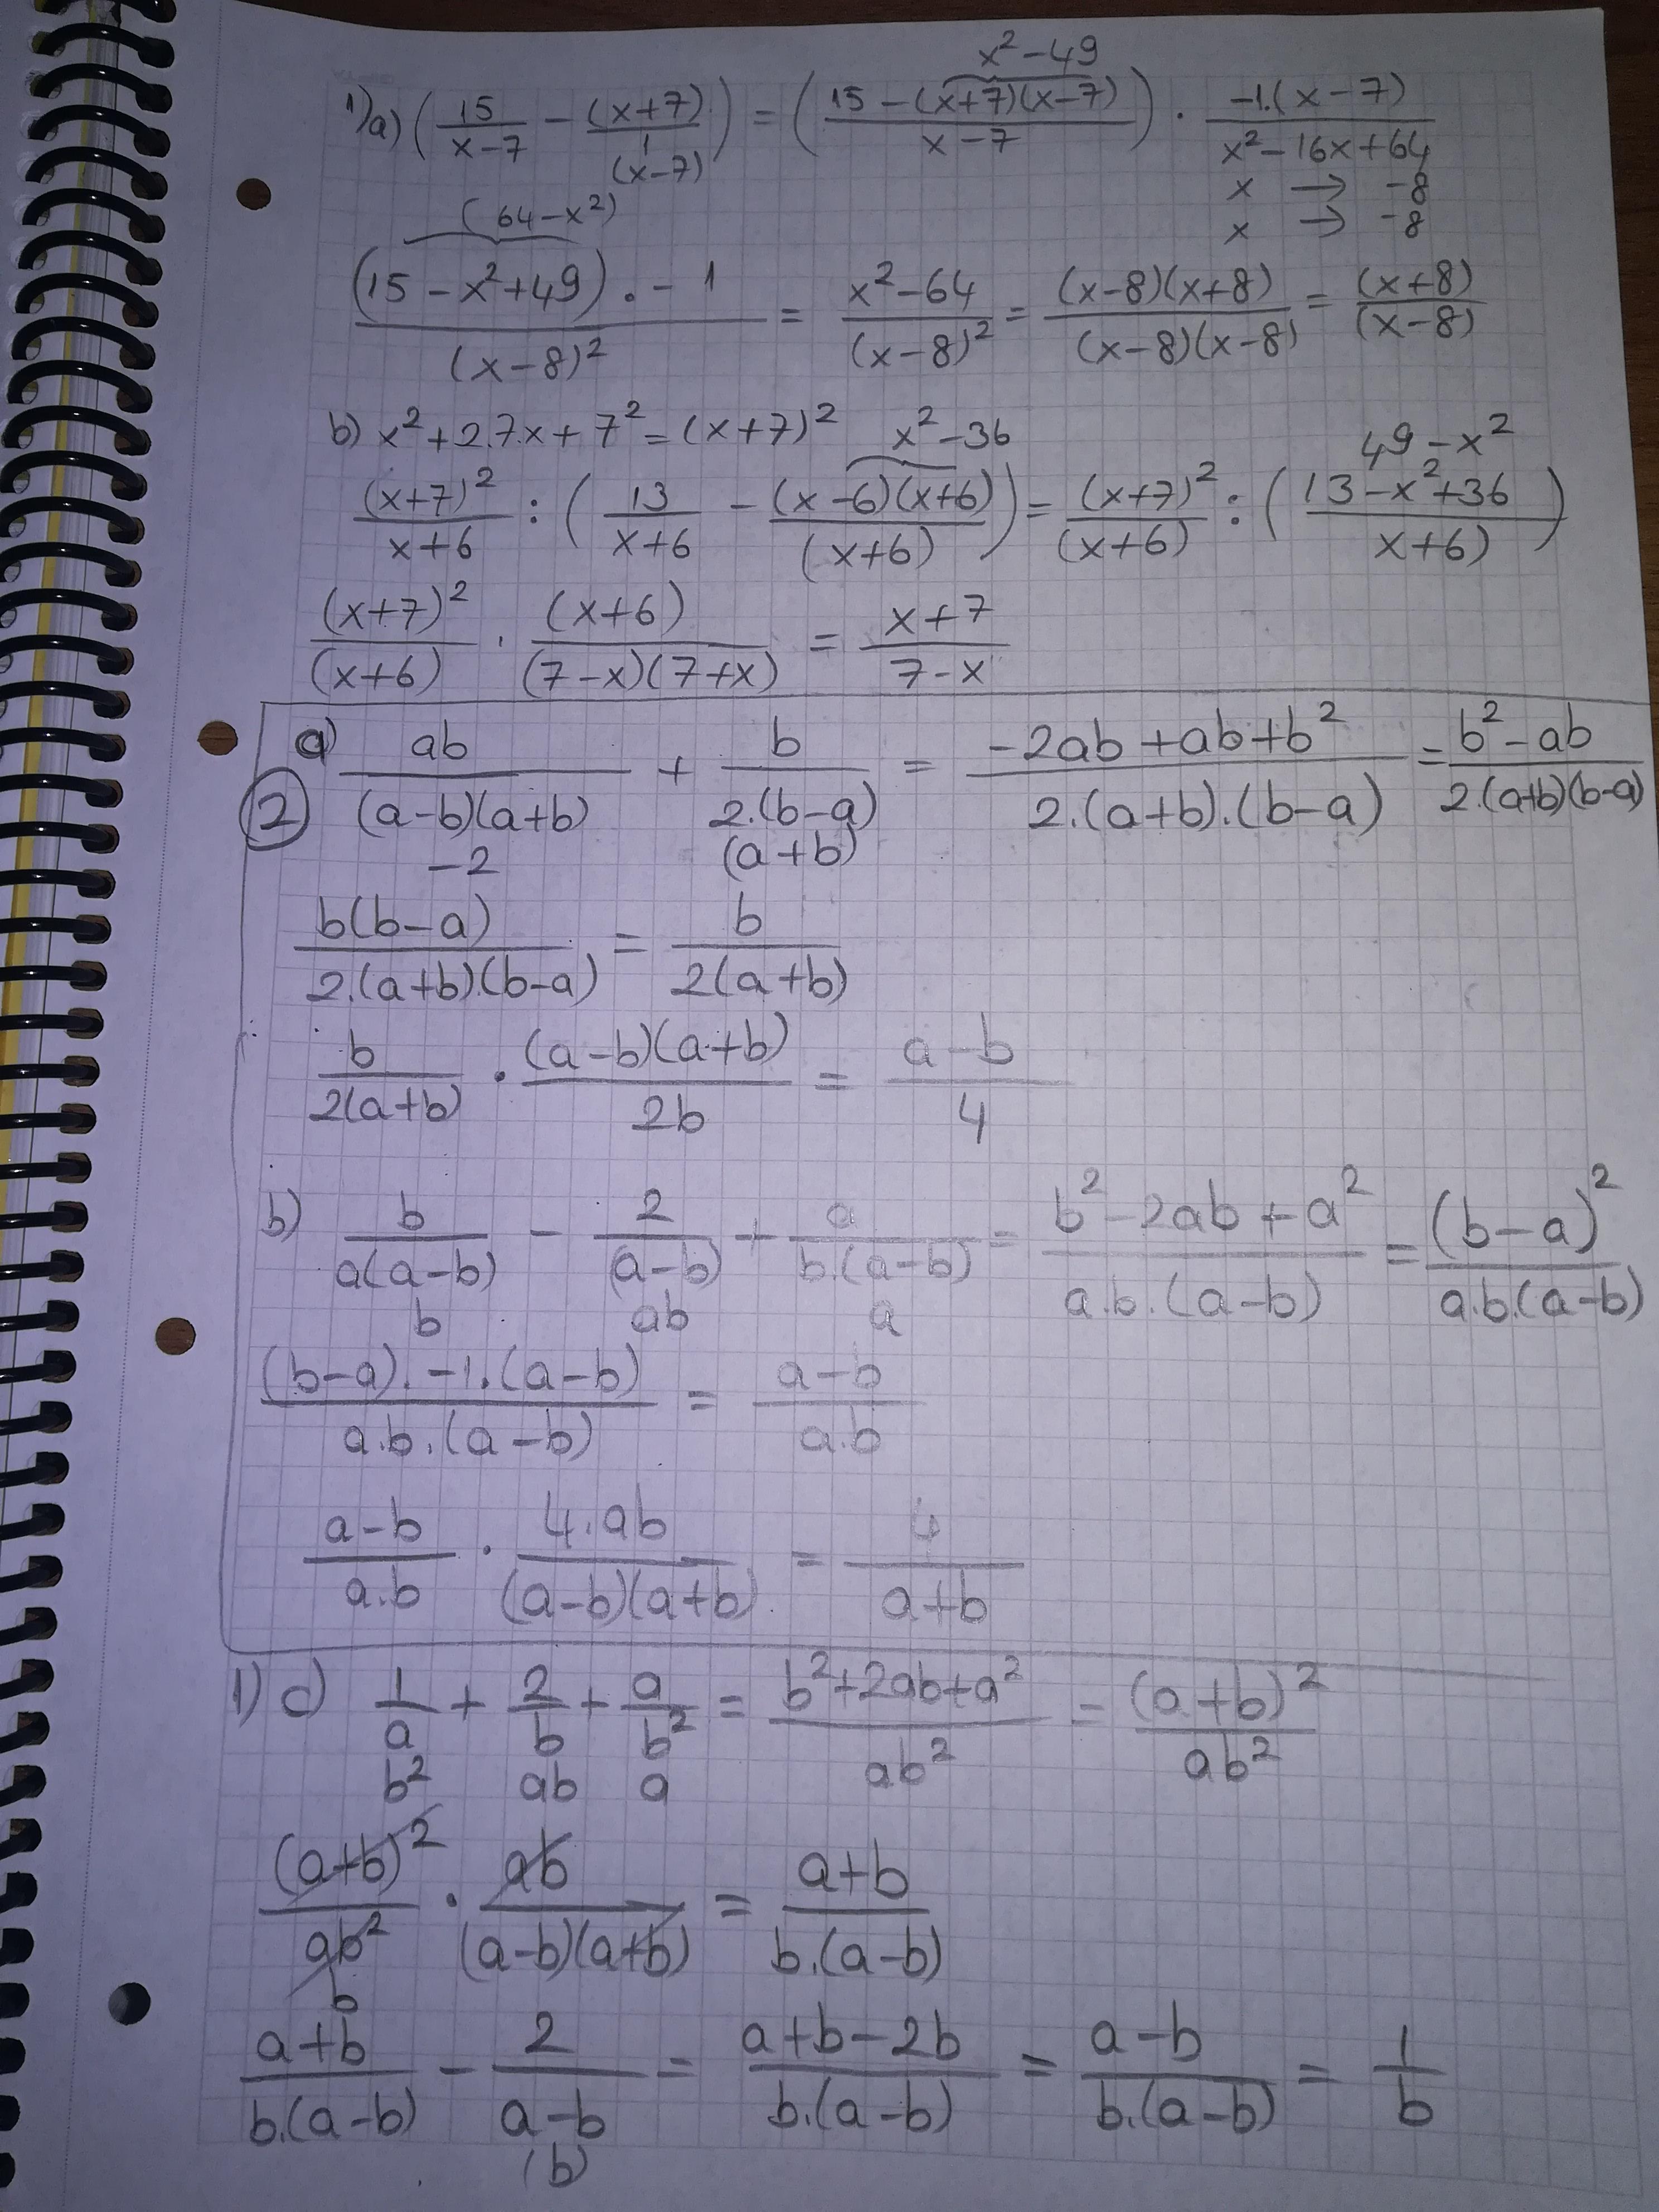 x² - 49
1) a) (15/(x-7) - (x+7)/1) = (15 - (x+7)(x-7))/(x-7)) · -1.(x-7)/(x² - 16x + 64)
(x-7)
x → -8
x → -8
(64 - x²)
(15 - x² + 49) . - 1/(x-8)² = (x² - 64)/(x-8)² = (x-8)(x+8)/(x-8)(x-8) = (x+8)/(x-8)
b) x² + 2.7.x + 7² = (x+7)²
x² - 36
49 - x²
(x+7)²/(x+6) : (13/(x+6) - (x-6)(x+6)/(x+6)) = (x+7)²/(x+6) : (13 - x² + 36/x+6))
(x+7)²/(x+6) . (x+6)/(7-x)(7+x) = (x+7)/(7-x)
2
a) ab/(a-b)(a+b) + b/2.(b-a) = (-2ab + ab + b²)/2.(a+b).(b-a) = (b² - ab)/2.(a+b)(b-a)
-2 (a+b)
b(b-a)/2.(a+b).(b-a) = b/2(a+b)
b/2(a+b) . (a-b)(a+b)/2b = (a-b)/4
b) b/a(a-b) - 2/(a-b) + a/b.(a-b) = (b² - 2ab + a²)/a.b.(a-b) = (b-a)²/a.b.(a-b)
b ab a
(b-a). -1.(a-b)/a.b.(a-b) = (a-b)/a.b
(a-b)/a.b . 4.ab/(a-b)(a+b) = 4/(a+b)
1) c) 1/a + 2/b + a/b² = (b² + 2ab + a²)/ab² = (a+b)²/ab²
b² ab a
(a+b)²/ab² . ab/(a-b)(a+b) = (a+b)/b.(a-b)
b
(a+b)/b.(a-b) - 2/(a-b) = (a+b-2b)/b.(a-b) = (a-b)/b.(a-b) = 1/b
(b)